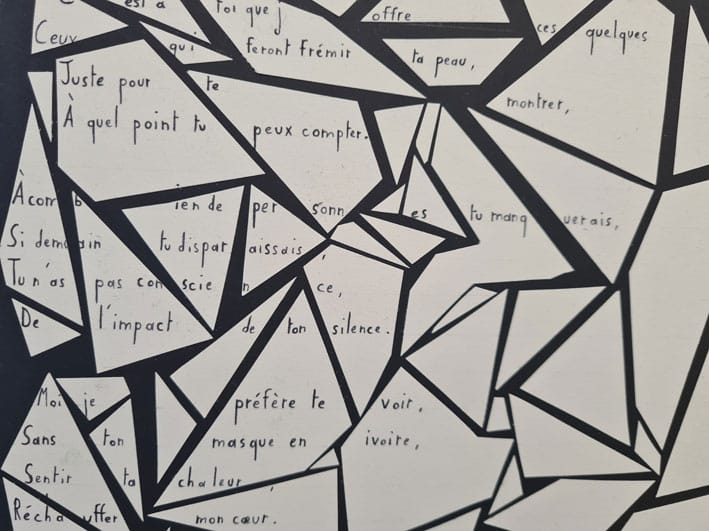 C'est à toi que j'offre ces quelques
Ceux qui feront frémir ta peau,
Juste pour te montrer,
À quel point tu peux compter.
À combien de personnes tu manquerais,
Si demain tu disparaissais,
Tu n'as pas conscience,
De l'impact de ton silence.
Moi je préfère te voir,
Sans ton masque en ivoire,
Sentir ta chaleur,
Réchauffer mon cœur.